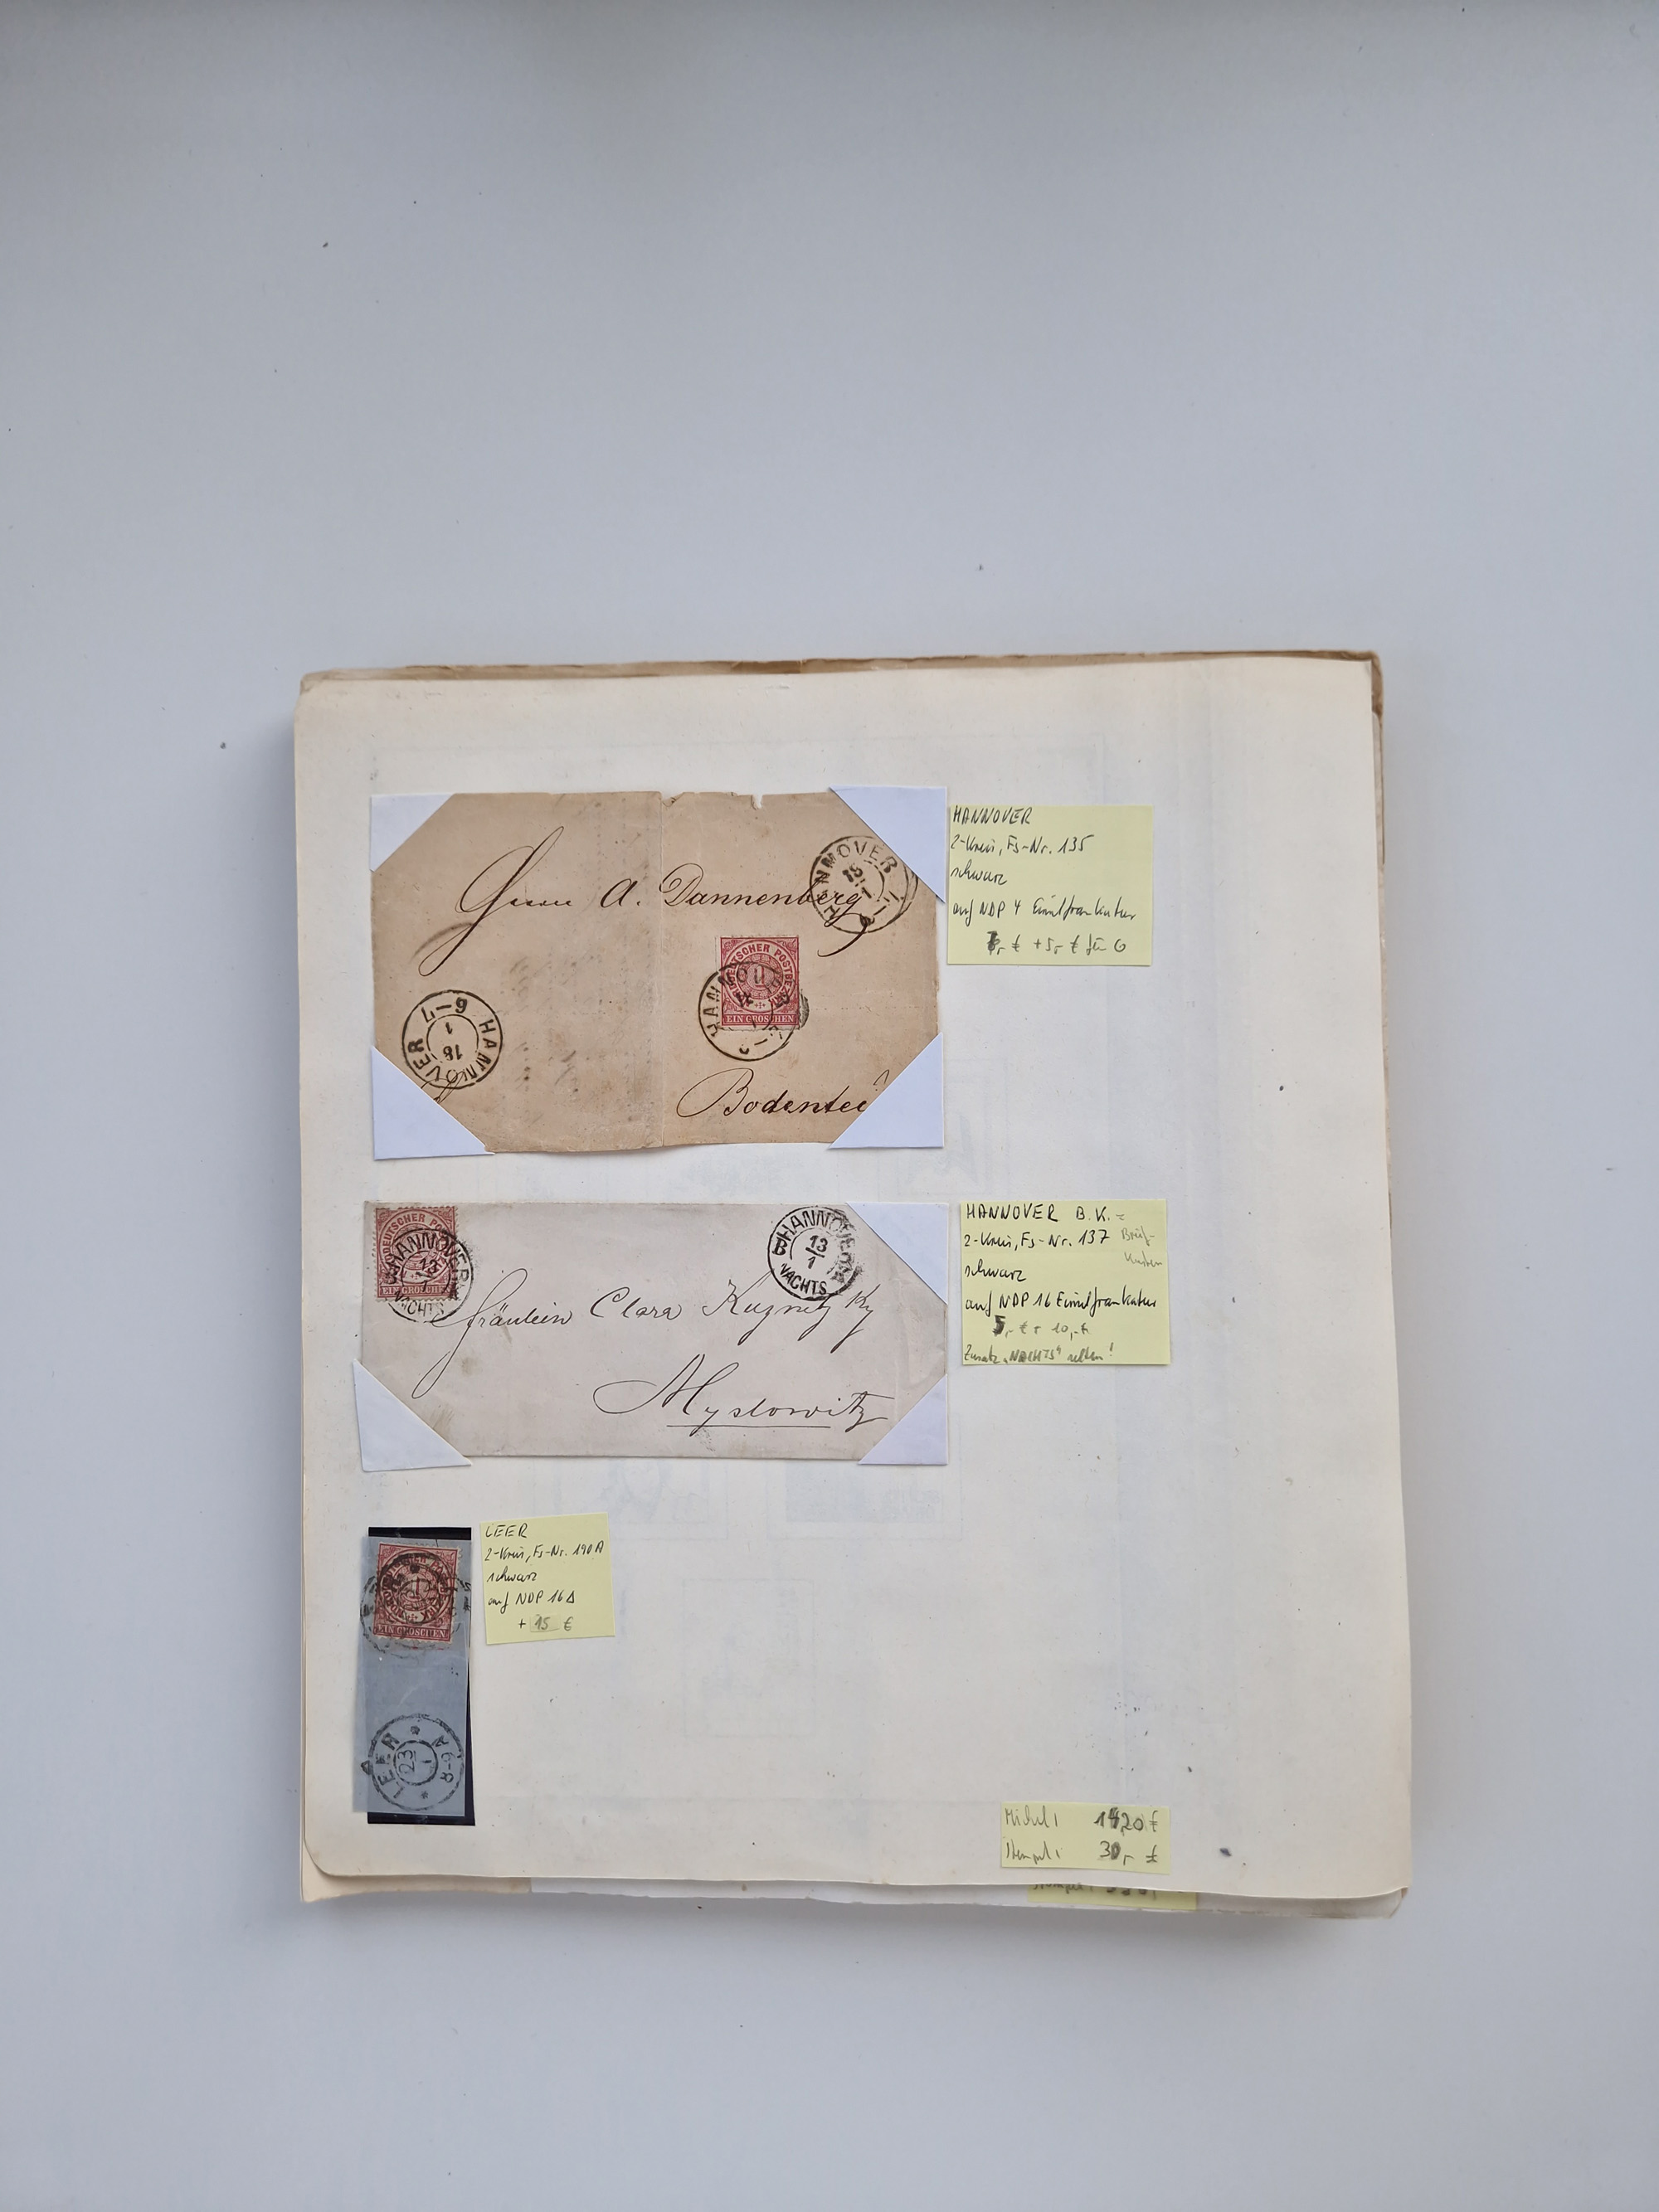 Herrn A. Dannenberg
HANNOVER
18
1
NORDDEUTSCHER POSTBEZIRK
EIN GROSCHEN
HANNOVER
HANNOVER
18
1
Bodenteich
HANNOVER
2-Kreis, Fs-Nr. 135
schwarz
auf NDP 4 Einzelfrankatur
,- € + 5,- € für
NORDDEUTSCHER POSTBEZIRK
EIN GROSCHEN
HANNOVER
13
1
NACHTS
B HANNOVER K
13
1
NACHTS
Fräulein Clara
Myslowitz
HANNOVER B.K. =
2-Kreis, Fs-Nr. 137 Brief-
kasten
schwarz
auf NDP 16 Einzelfrankatur
5,- € + 10,- €
Zusatz „NACHTS“ selten!
EIN GROSCHEN
LEER
23
1
8-9 A
LEER
2-Kreis, Fs-Nr. 190 A
schwarz
auf NDP 16 Δ
+ 15 €
Michel: 14,20 €
Stempel: 30,- €